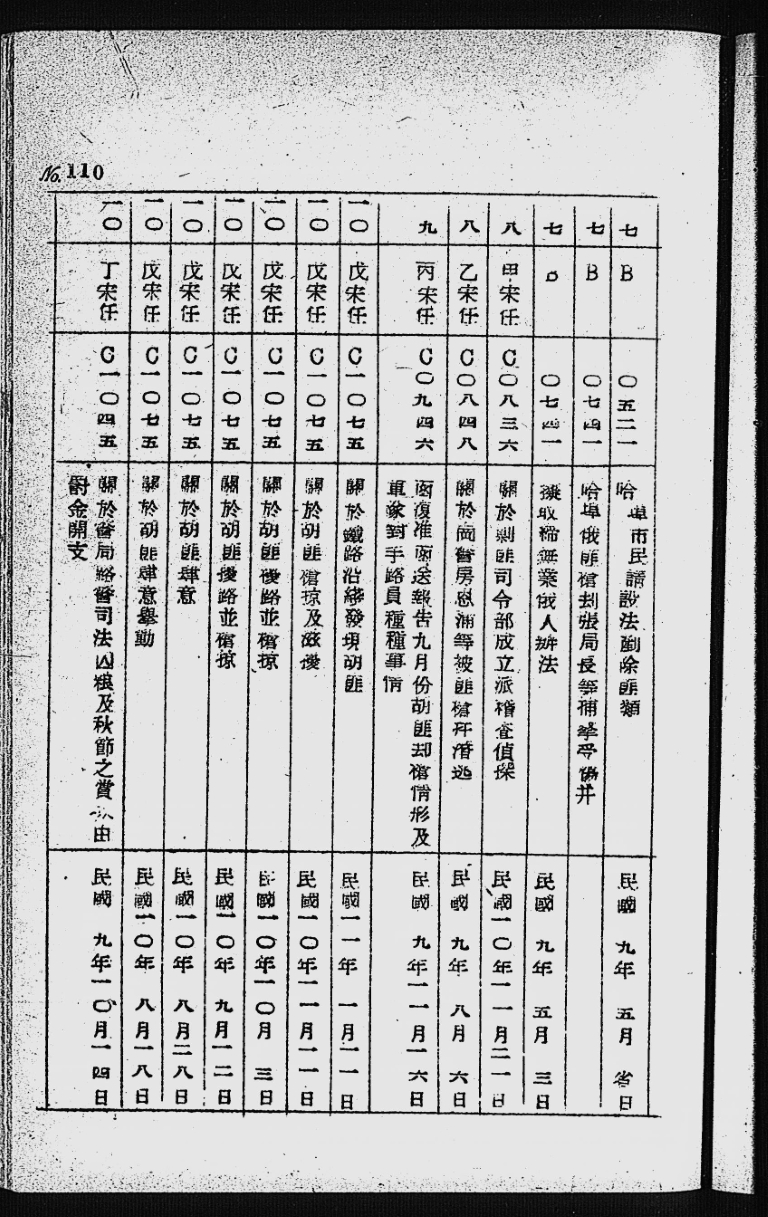 No. 110
七 B 〇五二一 哈埠市民請設法剷除匪類 民國 九年 五月 省日
七 B 〇七四一 哈埠俄匪槍刦張局長等捕拏受傷并
七 〇七四一 擬取締無業俄人辦法 民國 九年 五月 三日
八 甲宋任 C〇八三六 關於剿匪司令部成立派稽查偵探 民國一〇年一一月二一日
八 乙宋任 C〇八四八 關於 警房恩浦等被匪槍 逃 民國 九年 八月 六日
九 丙宋任 C〇九四六 函復准函送報告九月份胡匪却槍情形及
對手路員種種事情 民國 九年一一月一六日
一〇 戊宋任 C一〇七五 關於鐵路沿綫發現胡匪 民國一一年 一月二一日
一〇 戊宋任 C一〇七五 關於胡匪槍掠及 後 民國一〇年一一月一一日
一〇 戊宋任 C一〇七五 關於胡匪擾路並槍掠 民國一〇年一〇月 三日
一〇 戊宋任 C一〇七五 關於胡匪擾路並槍掠 民國一〇年 九月一二日
一〇 戊宋任 C一〇七五 關於胡匪肆意 民國一〇年 八月二八日
一〇 戊宋任 C一〇七五 關於胡匪肆意舉動 民國一〇年 八月一八日
一〇 丁宋任 C一〇四五 關於警局路警司法囚糧及秋節之賞 由
金開支 民國 九年一〇月一四日